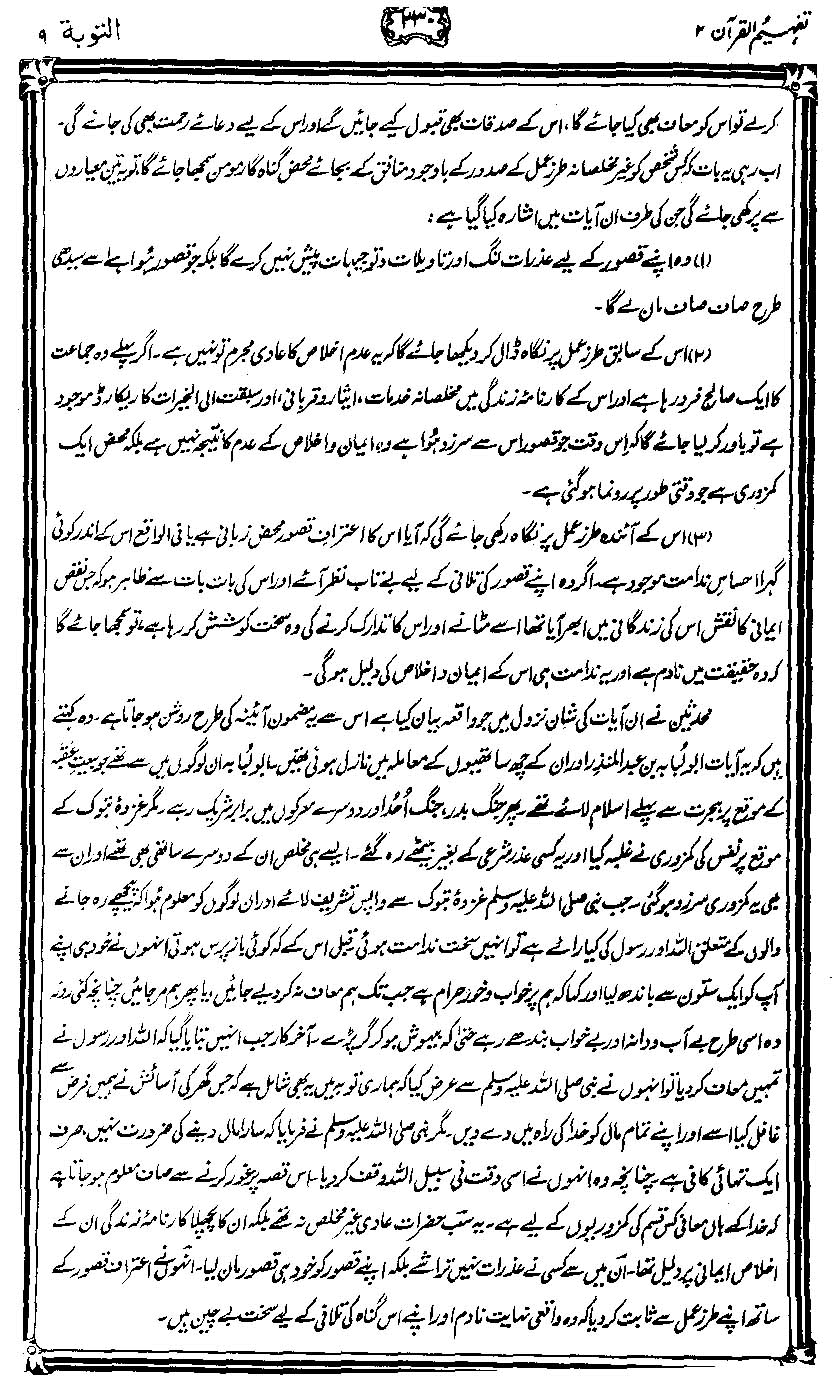 تفہیم القرآن ۲
۲۳۰
التوبة ۹
کرلے تو اس کو معاف بھی کیا جائے گا، اس کے صدقات بھی قبول کیے جائیں گے اور اس کے لیے دعائے رحمت بھی کی جائے گی۔
اب رہی یہ بات کہ کس شخص کو غیر مخلصانہ طرز عمل کے صدور کے باوجود منافق کے بجائے محض گناہ گار مومن سمجھا جائے گا، تو یہ تین معیاروں
سے پرکھی جائے گی جن کی طرف ان آیات میں اشارہ کیا گیا ہے:
(۱) وہ اپنے قصور کے لیے عذرات لنگ اور تاویلات و توجیہات پیش نہیں کرے گا بلکہ جو قصور ہُوا ہے اسے سیدھی
طرح صاف صاف مان لے گا۔
(۲) اس کے سابق طرز عمل پر نگاہ ڈال کر دیکھا جائے گا کہ یہ عدم اخلاص کا عادی مجرم تو نہیں ہے۔ اگر پہلے وہ جماعت
کا ایک صالح فرد رہا ہے اور اس کے کارنامۂ زندگی میں مخلصانہ خدمات، ایثار و قربانی، اور سبقت الی الخیرات کا ریکارڈ موجود
ہے تو باور کر لیا جائے گا کہ اس وقت جو قصور اس سے سرزد ہُوا ہے وہ ایمان و اخلاص کے عدم کا نتیجہ نہیں ہے بلکہ محض ایک
کمزوری ہے جو وقتی طور پر رونما ہو گئی ہے۔
(۳) اس کے آئندہ طرز عمل پر نگاہ رکھی جائے گی کہ آیا اس کا اعتراف قصور محض زبانی ہے یا فی الواقع اس کے اندر کوئی
گہرا احساسِ ندامت موجود ہے۔ اگر وہ اپنے قصور کی تلافی کے لیے بے تاب نظر آئے اور اس کی بات بات سے ظاہر ہو کہ جس نقص
ایمانی کا نقش اس کی زندگانی میں ابھر آیا تھا اسے مٹانے اور اس کا تدارک کرنے کی وہ سخت کوشش کر رہا ہے، تو سمجھا جائے گا
کہ وہ حقیقت میں نادم ہے اور یہ ندامت ہی اس کے ایمان و اخلاص کی دلیل ہوگی۔
محدثین نے ان آیات کی شان نزول میں جو واقعہ بیان کیا ہے اس سے یہ مضمون آئینہ کی طرح روشن ہو جاتا ہے۔ وہ کہتے
ہیں کہ یہ آیات ابولُبابہ بن عبدالمنذر اور ان کے چھ ساتھیوں کے معاملہ میں نازل ہوئی تھیں۔ ابولُبابہ ان لوگوں میں سے تھے جو بیعتِ عقبہ
کے موقع پر ہجرت سے پہلے اسلام لائے تھے۔ پھر جنگ بدر، جنگ اُحُد اور دوسرے معرکوں میں برابر شریک رہے۔ مگر غزوۂ تبوک کے
موقع پر نفس کی کمزوری نے غلبہ کیا اور یہ کسی عذر شرعی کے بغیر بیٹھے رہ گئے۔ ایسے ہی مخلص ان کے دوسرے ساتھی بھی تھے اور ان سے
بھی یہ کمزوری سرزد ہو گئی۔ جب نبی صلی اللہ علیہ وسلم غزوۂ تبوک سے واپس تشریف لائے اور ان لوگوں کو معلوم ہُوا کہ پیچھے رہ جانے
والوں کے متعلق اللہ اور رسول کی کیا رائے ہے تو انہیں سخت ندامت ہوئی۔ قبل اس کے کہ کوئی باز پرس ہوتی انہوں نے خود ہی اپنے
آپ کو ایک ستون سے باندھ لیا اور کہا کہ ہم پر خواب و خور حرام ہے جب تک ہم معاف نہ کر دیے جائیں، یا پھر ہم مر جائیں چنانچہ کئی روز
وہ اسی طرح بے آب و دانہ اور بے خواب بندھے رہے حتٰی کہ بیہوش ہو کر گر پڑے۔ آخر کار جب انہیں بتایا گیا کہ اللہ اور رسول نے
تمہیں معاف کر دیا تو انہوں نے نبی صلی اللہ علیہ وسلم سے عرض کیا کہ ہماری توبہ میں یہ بھی شامل ہے کہ جس گھر کی آسائش نے ہمیں فرض سے
غافل کیا اسے اور اپنے تمام مال کو خدا کی راہ میں دے دیں۔ مگر نبی صلی اللہ علیہ وسلم نے فرمایا کہ سارا مال دینے کی ضرورت نہیں، صرف
ایک تہائی کافی ہے۔ چنانچہ وہ انہوں نے اسی وقت فی سبیل اللہ وقف کر دیا۔ اس قصہ پر غور کرنے سے صاف معلوم ہو جاتا ہے
کہ خدا کے ہاں معافی کس قسم کی کمزوریوں کے لیے ہے۔ یہ سب حضرات عادی غیر مخلص نہ تھے بلکہ ان کا پچھلا کارنامۂ زندگی ان کے
اخلاص ایمانی پر دلیل تھا۔ ان میں سے کسی نے عذرات نہیں تراشے بلکہ اپنے قصور کو خود ہی قصور مان لیا۔ انہوں نے اعتراف قصور کے
ساتھ اپنے طرز عمل سے ثابت کر دیا کہ وہ واقعی نہایت نادم اور اپنے اس گناہ کی تلافی کے لیے سخت بے چین ہیں۔